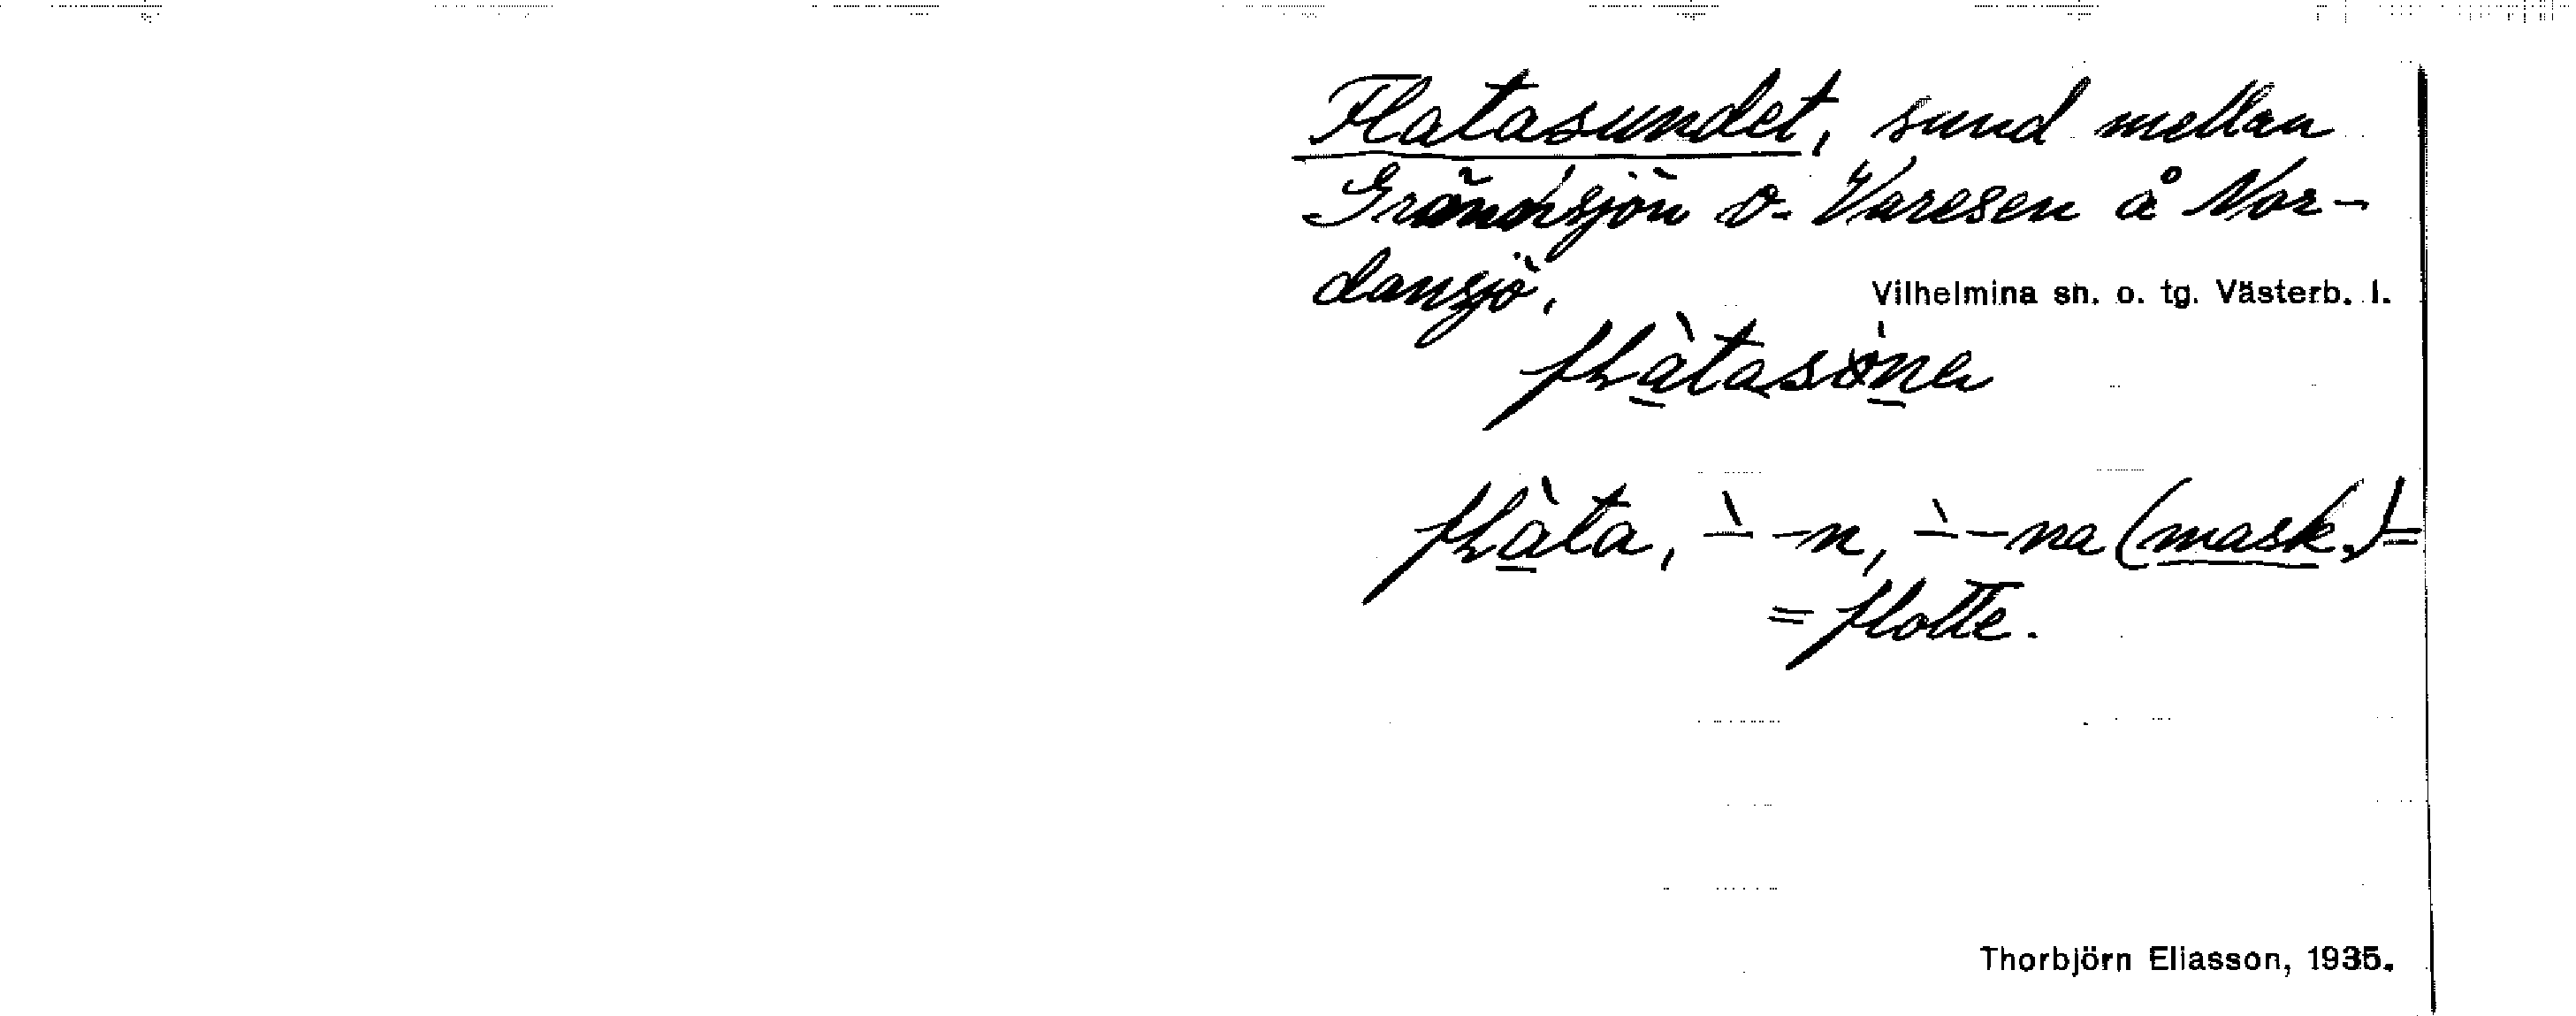 Flatasundet, sund mellan
Grännsjön o. Varesen å Nor-
dansjö.
Vilhelmina sn. o. tg. Västerb. l.
flàta, `--n, `--na (mask.) =
= flotte.
Thorbjörn Eliasson, 1935.